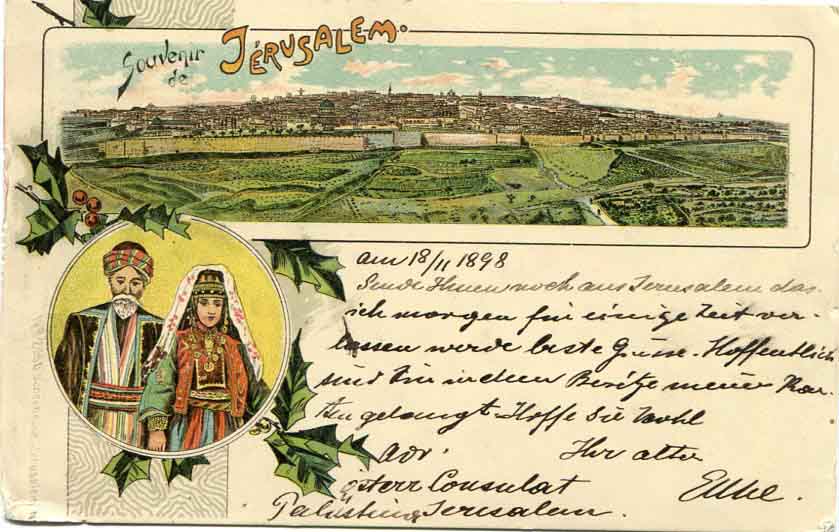 Souvenir
de
JÉRUSALEM.
am 18/11 1898
Sende Ihnen noch aus Jerusalem das
ich morgen für einige Zeit ver-
lassen werde beste Grüsse. Hoffentlich
sind Sie in den Besitze meiner Kar-
ten gelangt. Hoffe Sie Wohl
Adr. Ihr alter
österr Consulat
Palästina Jerusalem.